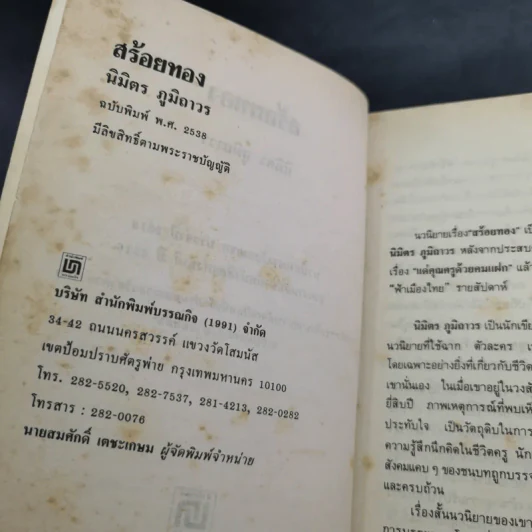 สร้อยทอง
นิมิตร ภูมิถาวร
ฉบับพิมพ์ พ.ศ. 2538
มีลิขสิทธิ์ตามพระราชบัญญัติ
บริษัท สำนักพิมพ์บรรณกิจ (1991) จำกัด
34-42 ถนนนครสวรรค์ แขวงวัดโสมนัส
เขตป้อมปราบศัตรูพ่าย กรุงเทพมหานคร 10100
โทร. 282-5520, 282-7537, 281-4213, 282-0282
โทรสาร : 282-0076
นายสมศักดิ์ เตชะเกษม ผู้จัดพิมพ์จำหน่าย
นวนิยายเรื่อง"สร้อยทอง" เป็
นิมิตร ภูมิถาวร หลังจากประสบ
เรื่อง "แด่คุณครูด้วยคมแฝก" แล้
"ฟ้าเมืองไทย" รายสัปดาห์
นิมิตร ภูมิถาวร เป็นนักเขีย
นวนิยายที่ใช้ฉาก ตัวละคร เ
โดยเฉพาะอย่างยิ่งที่เกี่ยวกับชีวิต
เขานั่นเอง ในเมื่อเขาอยู่ในวงส
ยี่สิบปี ภาพเหตุการณ์ที่พบเห็
ประทับใจ เป็นวัตถุดิบในการ
ความรู้สึกนึกคิดในชีวิตครู นัก
สังคมแคบ ๆ ของชนบทถูกบรรจ
และครบถ้วน
เรื่องสั้นนวนิยายของเขา